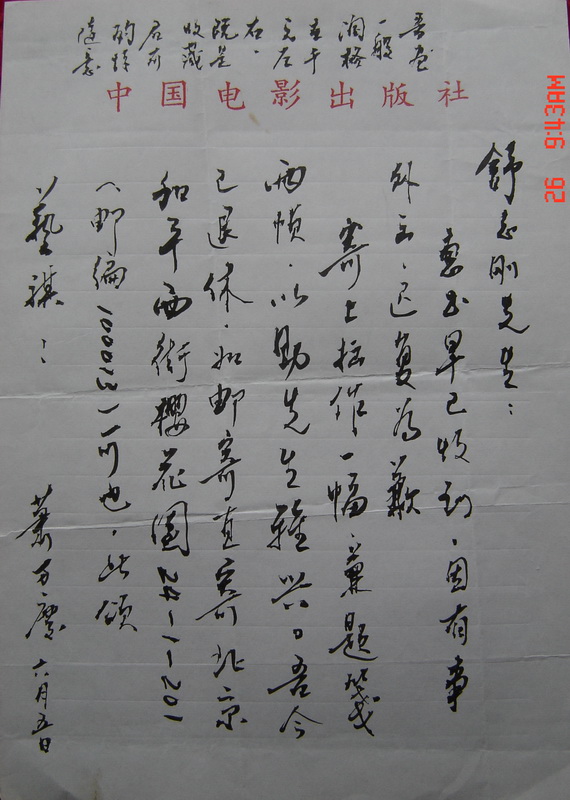 吾画
一般
润格
五千
元左
右，
既是
收藏
君可
酌情
随意
中国电影出版社
舒志刚先生：
惠书早已收到，因有事
外出，迟复为歉
寄上拙作一幅，兼题笺
两帧，以助先生雅兴。吾今
已退休，如邮寄直寄北京
和平西街樱花园24-1-201
（邮编100013）一川也，此颂
艺祺！
萧万庆 六月五日
26 9:43AM